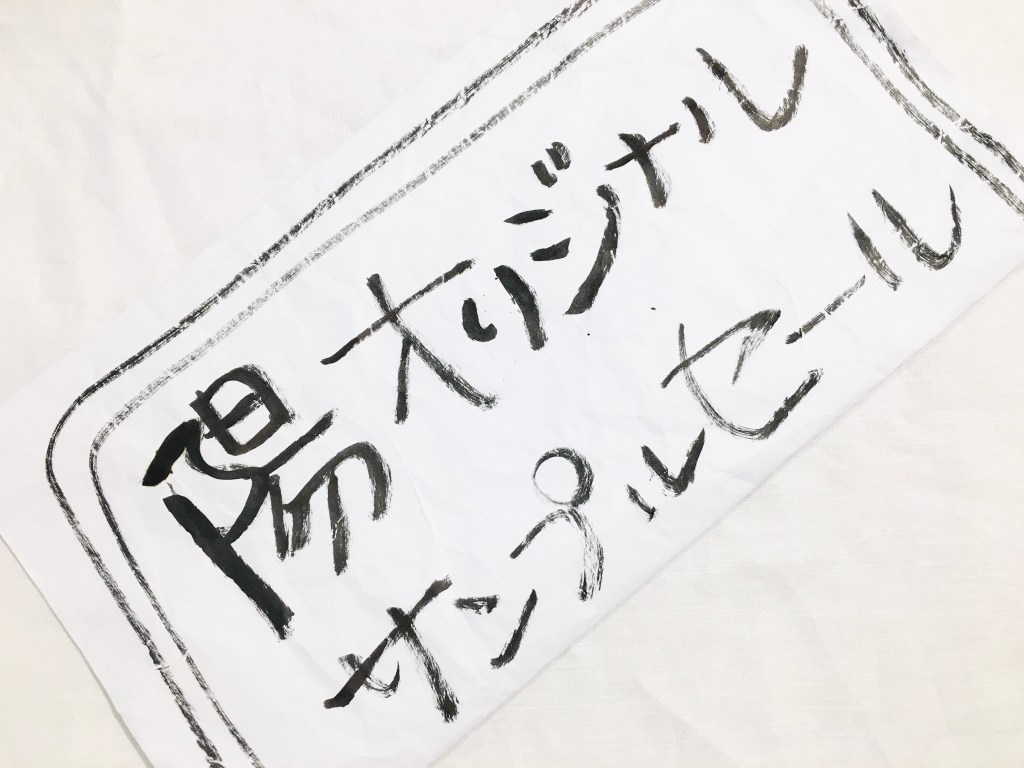 陽オリジナル
サンプルセール